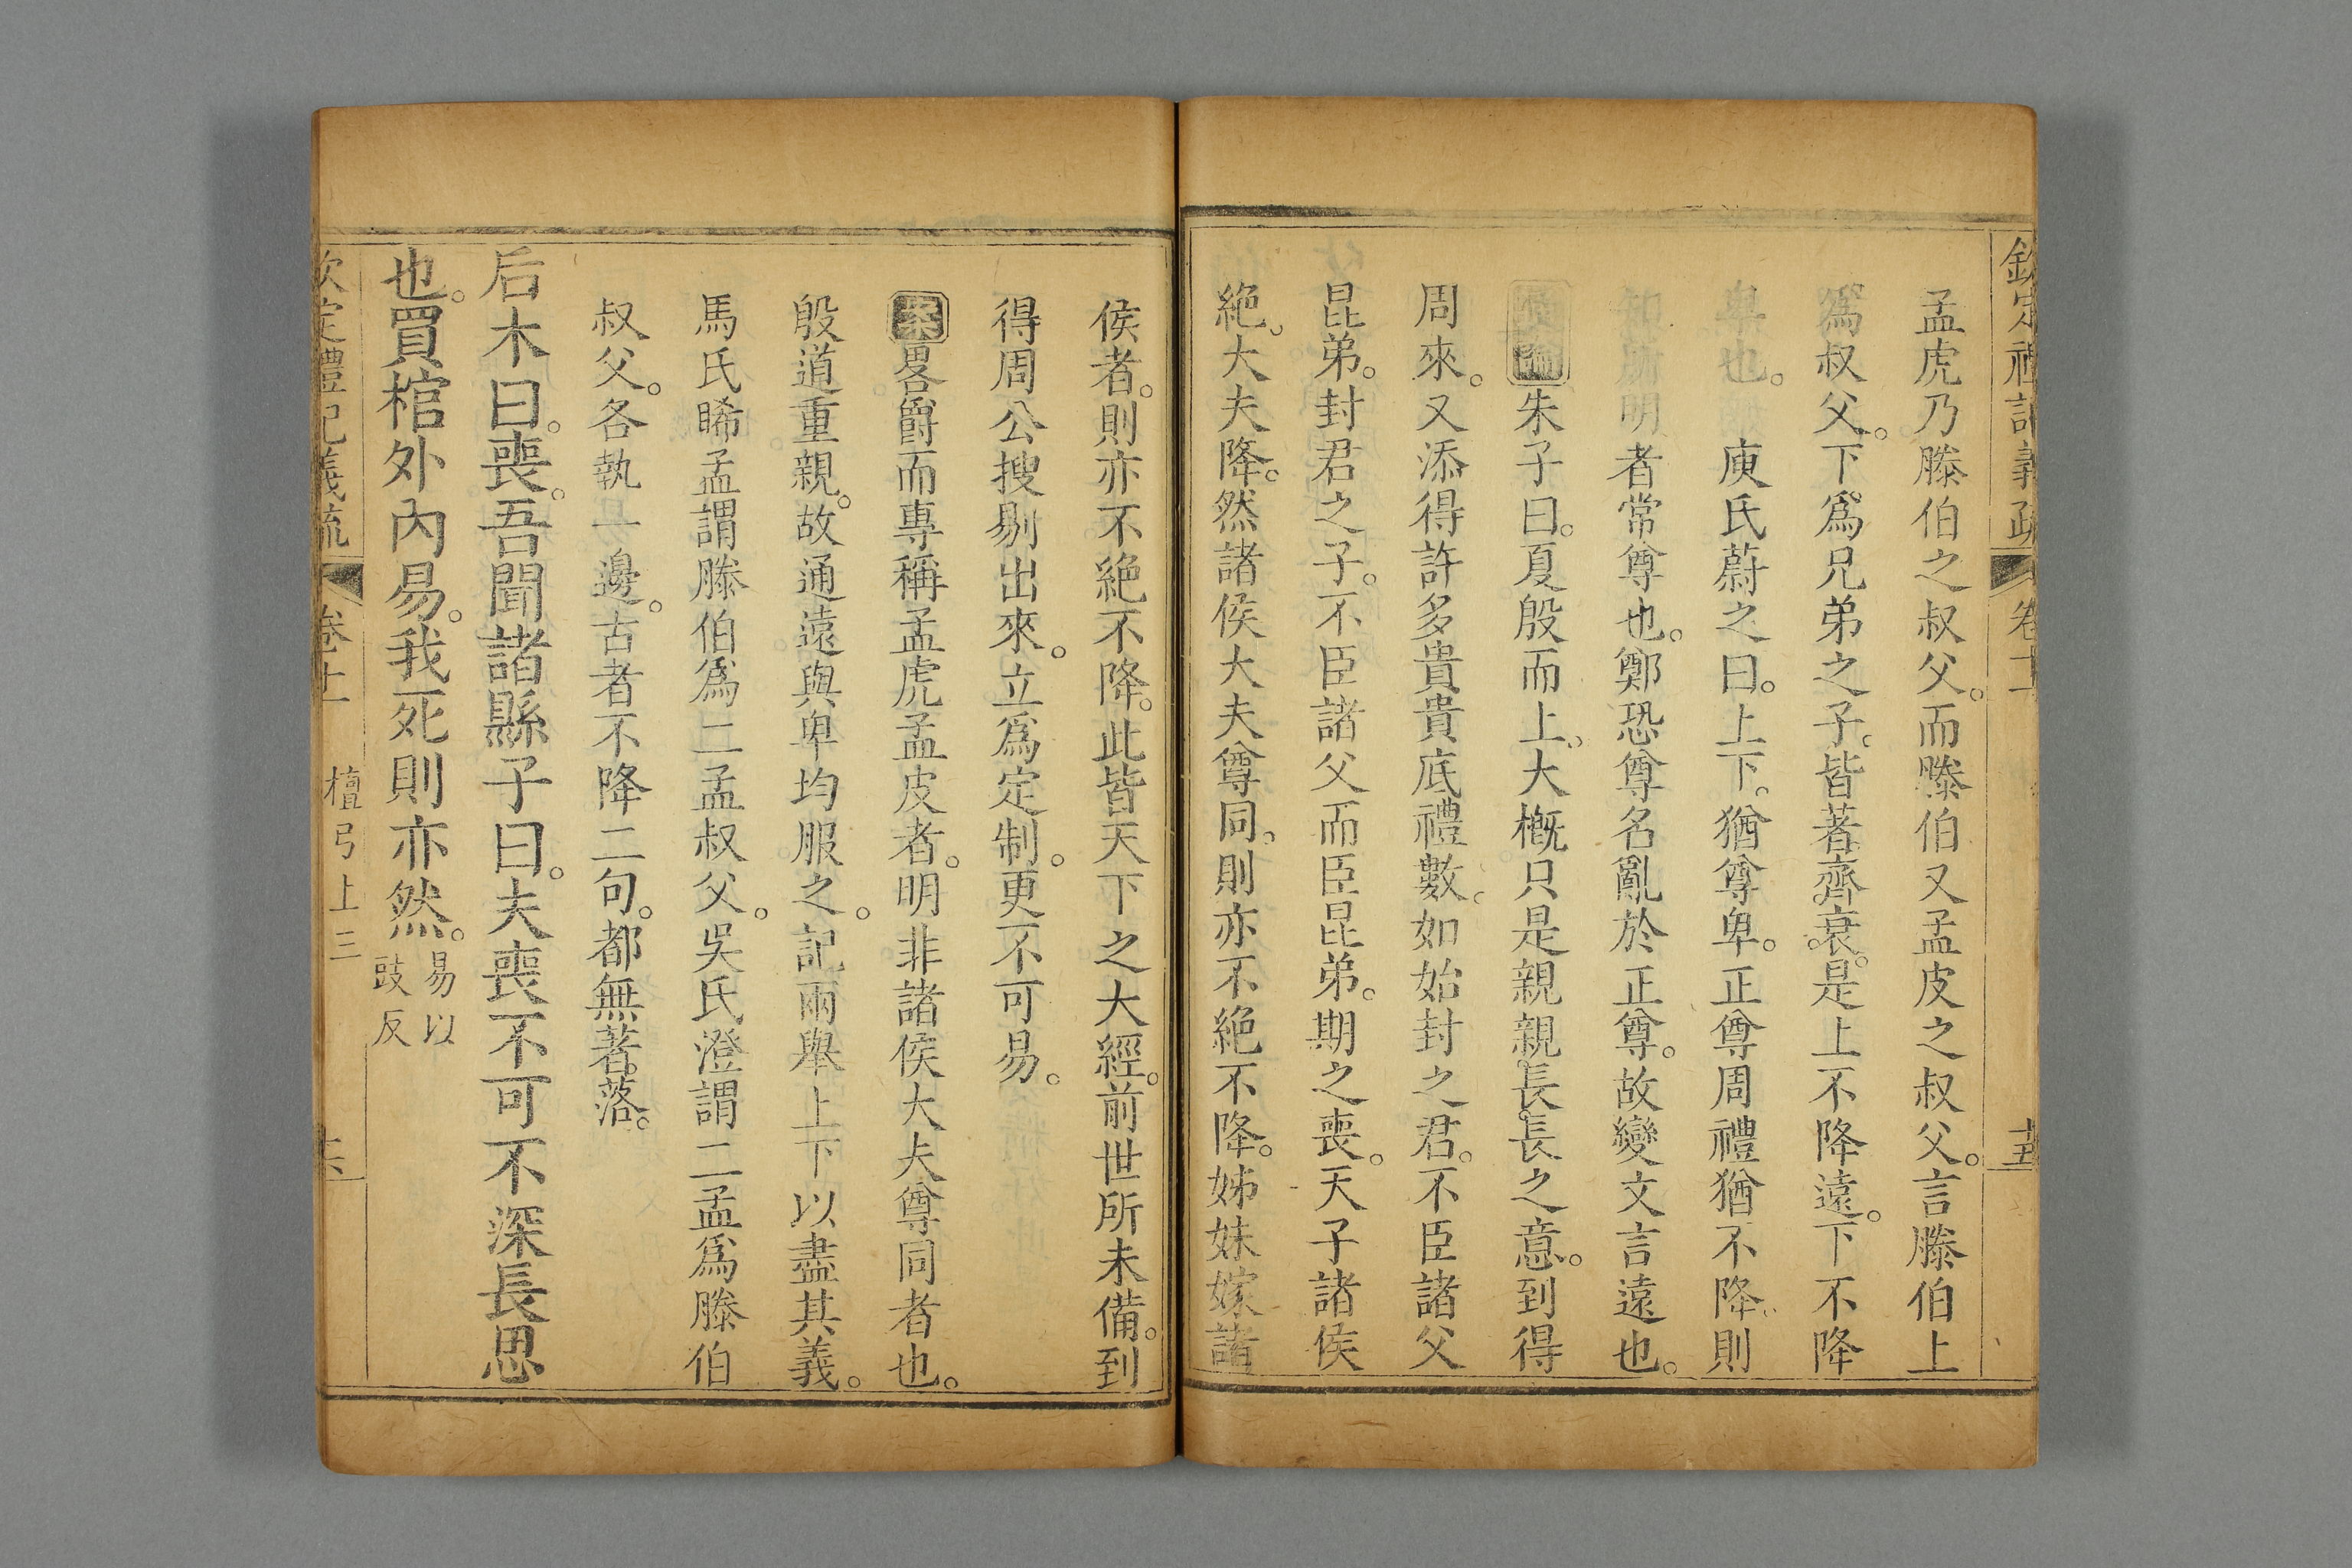 欽定禮記義疏 卷十一 十五
孟虎乃滕伯之叔父。而滕伯又孟皮之叔父。言滕伯上
爲叔父。下爲兄弟之子。皆著齊衰。是上不降遠。下不降
卑也。 庾氏蔚之曰。上下。猶尊卑。正尊周禮猶不降。則
知所明者常尊也。鄭恐尊名亂於正尊。故變文言遠也。
朱子曰。夏殷而上。大槪只是親親長長之意。到得
周來。又添得許多貴貴底禮數。如始封之君。不臣諸父
昆弟。封君之子。不臣諸父而臣昆弟。期之喪。天子諸侯
絶。大夫降。然諸侯大夫尊同。則亦不絶不降。姊妹嫁諸
侯者。則亦不絶不降。此皆天下之大經。前世所未備。到
得周公搜剔出來。立爲定制。更不可易。
案畧爵而專稱孟虎孟皮者。明非諸侯大夫尊同者也。
殷道重親。故通遠與卑均服之。記兩舉上下以盡其義。
馬氏睎孟謂滕伯爲二孟叔父。吳氏澄謂二孟爲滕伯
叔父。各執一邊。古者不降二句。都無著落。
后木曰。喪。吾聞諸縣子曰。夫喪不可不深長思
也。買棺外內易。我死則亦然。易以
豉反
欽定禮記義疏 卷十一 檀弓上三 十六